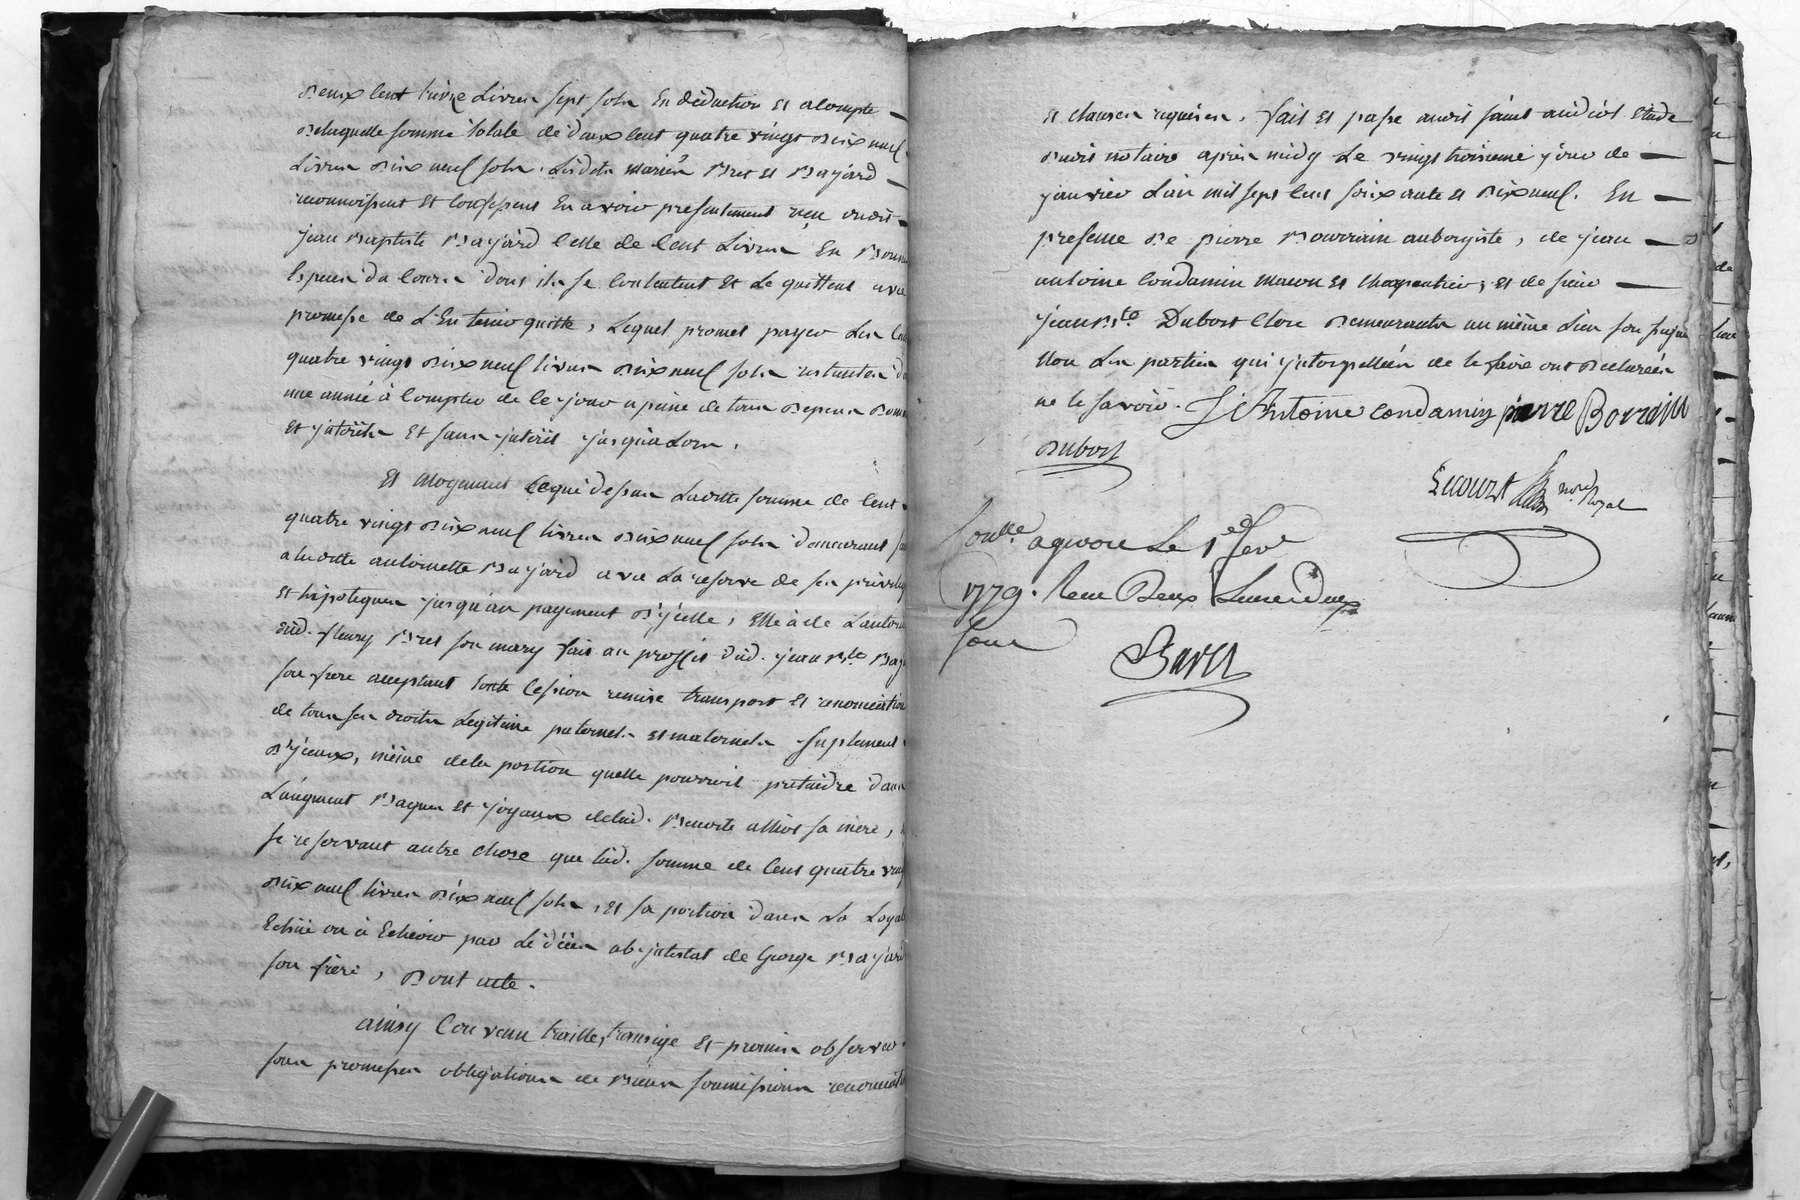 Deux cent treize Livres sept sols En déduction Et acompte
Delaquelle somme totale de deux cent quatre vingt Dix neuf
Livres Dix neuf sols. Lesdits mariés Bret et Bajard
reconnoissent Et confessent En avoir presentement reçu dudit
jean Baptiste Bajard celle de Cent Livres En Bonnes
Especes du cours dont ils se contentent Et Le quittent avec
promesse de L'En tenir quitte, Lequel promet payer Les Cent
quatre vingt Dix neuf livres Dix neuf sols restantes
une année à compter de ce jour a peine de tous Depens Dom
Et jnterêts Et sans jnterêt jusqu'a Lors.
Et moyennant ce que dessus Laditte somme de Cent
quatre vingt Dix neuf livres Dix neuf sols demeurant
a laditte antoinette Bajard avec La reserve de ses privileg
Et hipoteques jusqu'au payement D'jcelle, Elle à de L'autori
dud. fleury Bret son mary fait au proffit dud. jean Bte Baj
son frere acceptant toute Cession remise transport Et renonciation
de tous ses droits Legitime paternels et maternels suplement
D'jceux, même dela portion quelle pourroit pretendre dans
L'augment Bagues Et joyaux delad. Benoite alliot sa mere,
se reservant autre chose que lad. somme de Cent quatre ving
Dix neuf livres Dix neuf sols, Et sa portion dans La Loyal
Echüe ou à Echeoir par Le décès ab-jntestat de George Bajard
son frere, Dont acte.
ainsy Convenu traitté, transigé Et promis observer
sous promesses obligations de Biens soumissions renonciat
et clauses requises. fait Et passé audit Etude
dudit notaire après midy Le vingt troisieme jour de
janvier L'an mil sept Cent soixante et Dix neuf. En
presence De pierre Bourrain aubergiste, de jean
antoine Condamin macon Et charpentier, Et de sieur
jean Bte Dubost clerc Demeurants au même Lieu soussignés
Non Les parties qui jnterpellées de le faire ont Declarées
ne le savoir. J Antoine condamin pierre Borrain
Dubost
Lecourt nore Royal
Conllé a givors Le 1er fevr
1779. Recu Deux Livres deux
sous
Baret